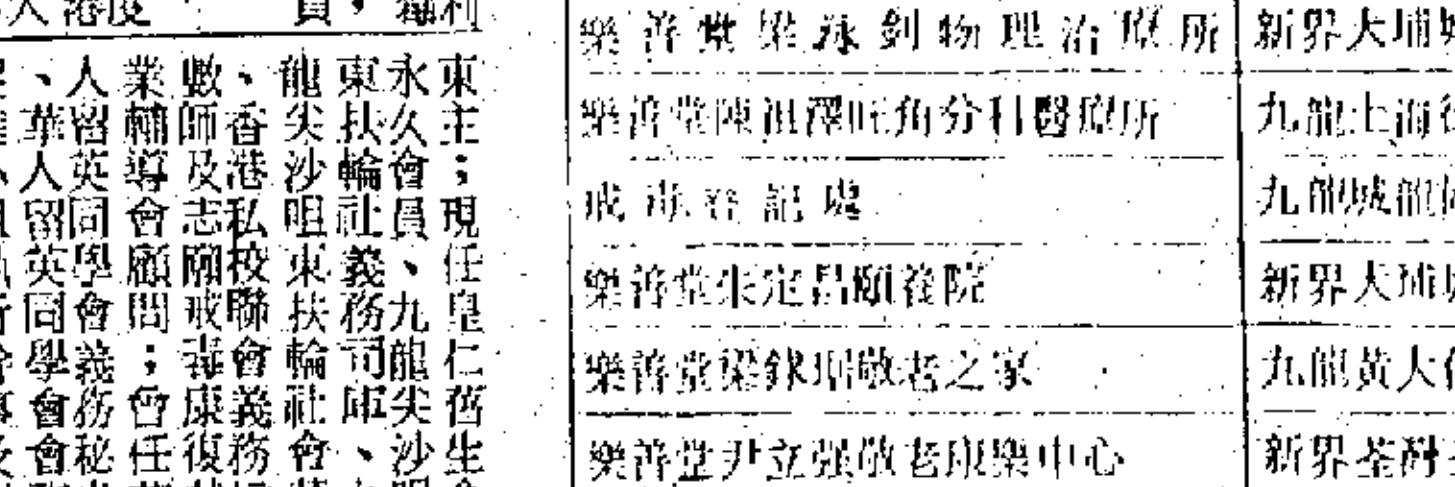 東主；現任皇仁舊生
永久會員、九龍尖沙
東扶輪社義務司庫、
龍尖沙咀東扶輪社會
、香港私校聯會義務
數師及志願戒毒康復
業輔導會顧問；曾任
人留英同學會義務秘
、華人留英同學會會
樂善堂梁泳釗物理治療所
新界大埔
樂善堂陳祖澤旺角分科醫療所
九龍上海
戒毒登記處
九龍城龍
樂善堂朱定昌頤養院
新界大埔
樂善堂梁銶琚敬老之家
九龍黃大
樂善堂尹立強敬老康樂中心
新界荃